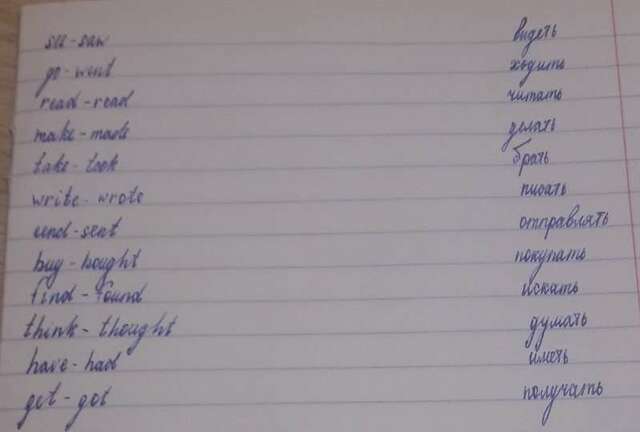 see - saw видеть
go - went ходить
read - read читать
make - made делать
take - took брать
write - wrote писать
send - sent отправлять
buy - bought покупать
find - found искать
think - thought думать
have - had иметь
get - got получать